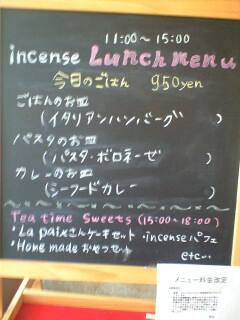 11:00〜15:00
incense Lunch menu
今日のごはん 950yen
ごはんのお皿
(イタリアンハンバーグ )
パスタのお皿
(パスタ・ボロネーゼ )
カレーのお皿
(シーフードカレー )
Tea time sweets (15:00〜18:00)
・La paixさんケーキセット ・incenseパフェ
・Home madeおやつセット etc…
メニュー料金改定